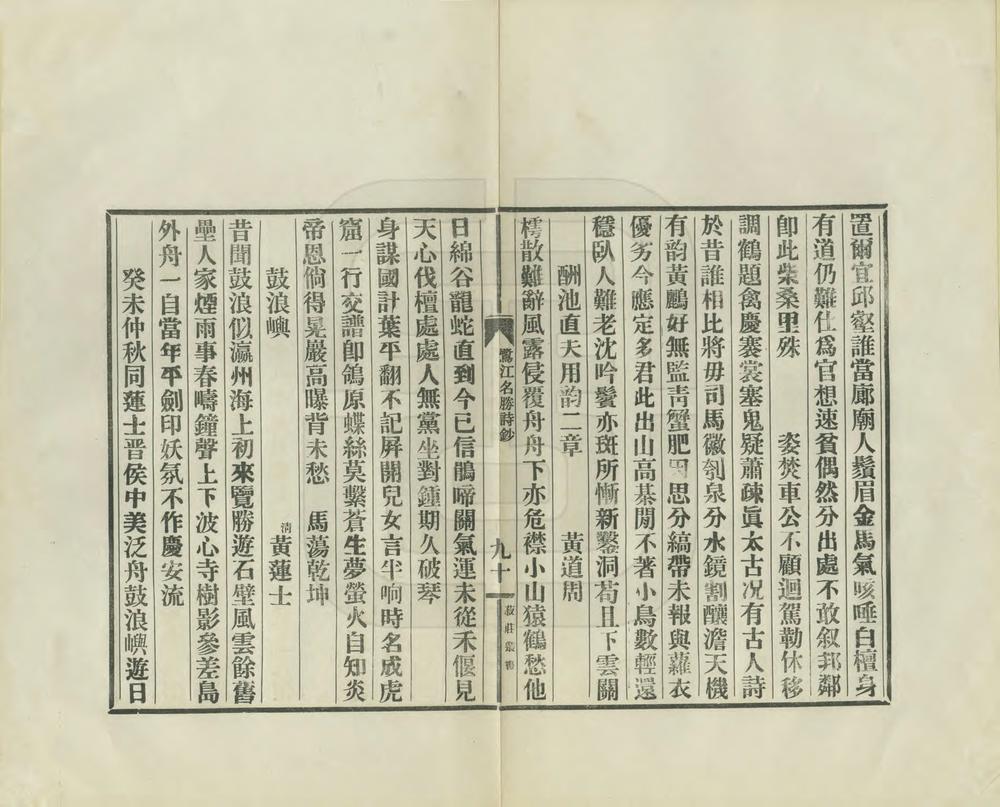 置爾宜邱壑誰當廊廟人鬚眉金馬氣咳唾白檀身
有道仍難仕爲官想速貧偶然分出處不敢叙邦鄰
即此柴桑里殊　　姿焚車公不顧迴駕勒休移
調鶴題禽慶褰裳塞鬼疑蕭疎眞太古况有古人詩
於昔誰相比將毋司馬徽刳泉分水鏡割釀澹天機
有韵黃鸝好無監靑蟹肥因思分縞帶未報與蘿衣
優劣今應定多君此出山高棊閒不著小鳥數輕還
穩臥人難老沈吟鬢亦斑所慚新鑿洞苟且下雲關
酬池直夫用韵二章　　黃道周
樗散難辭風露侵覆舟舟下亦危襟小山猿鶴愁他
鷺江名勝詩鈔
九十一
菽莊叢書
日綿谷龍蛇直到今已信鵑啼關氣運未從禾偃見
天心伐檀處處人無黨坐對鍾期久破琴
身謀國計葉平翻不記屏關兒女言半响時名成虎
窟一行交譜卽鴒原蝶絲莫繫蒼生夢螢火自知炎
帝恩倘得晃巖高曝背未愁　馬蕩乾坤
鼓浪嶼　　淸黃蓮士
昔聞鼓浪似瀛州海上初來覽勝遊石壁風雲餘舊
壘人家煙雨事春疇鐘聲上下波心寺樹影參差島
外舟一自當年平劍印妖氛不作慶安流
癸未仲秋同蓮士晋侯中美泛舟鼓浪嶼遊日